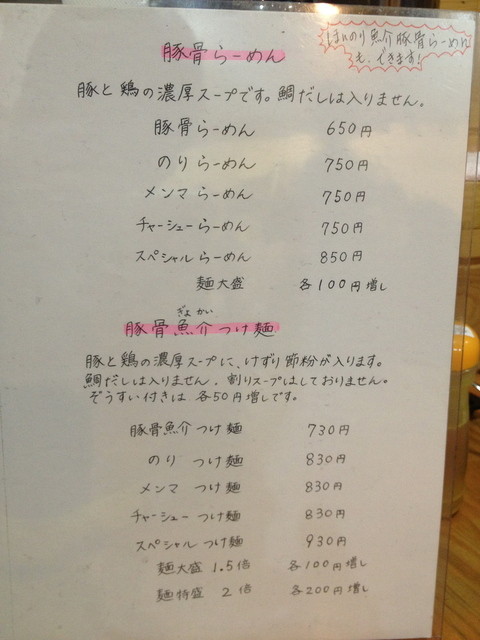 ほんのり魚介豚骨らーめん
も、できます!
豚骨らーめん
豚と鶏の濃厚スープです。鯛だしは入りません。
豚骨らーめん 650円
のりらーめん 750円
メンマらーめん 750円
チャーシューらーめん 750円
スペシャルらーめん 850円
麺大盛 各100円増し
ぎょかい
豚骨魚介つけ麺
豚と鶏の濃厚スープに、けずり節粉が入ります。
鯛だしは入りません。割りスープはしておりません。
ぞうすい付きは 各50円増しです。
豚骨魚介つけ麺 730円
のり つけ麺 830円
メンマ つけ麺 830円
チャーシューつけ麺 830円
スペシャルつけ麺 930円
麺大盛 1.5倍 各100円増し
麺特盛 2倍 各200円増し